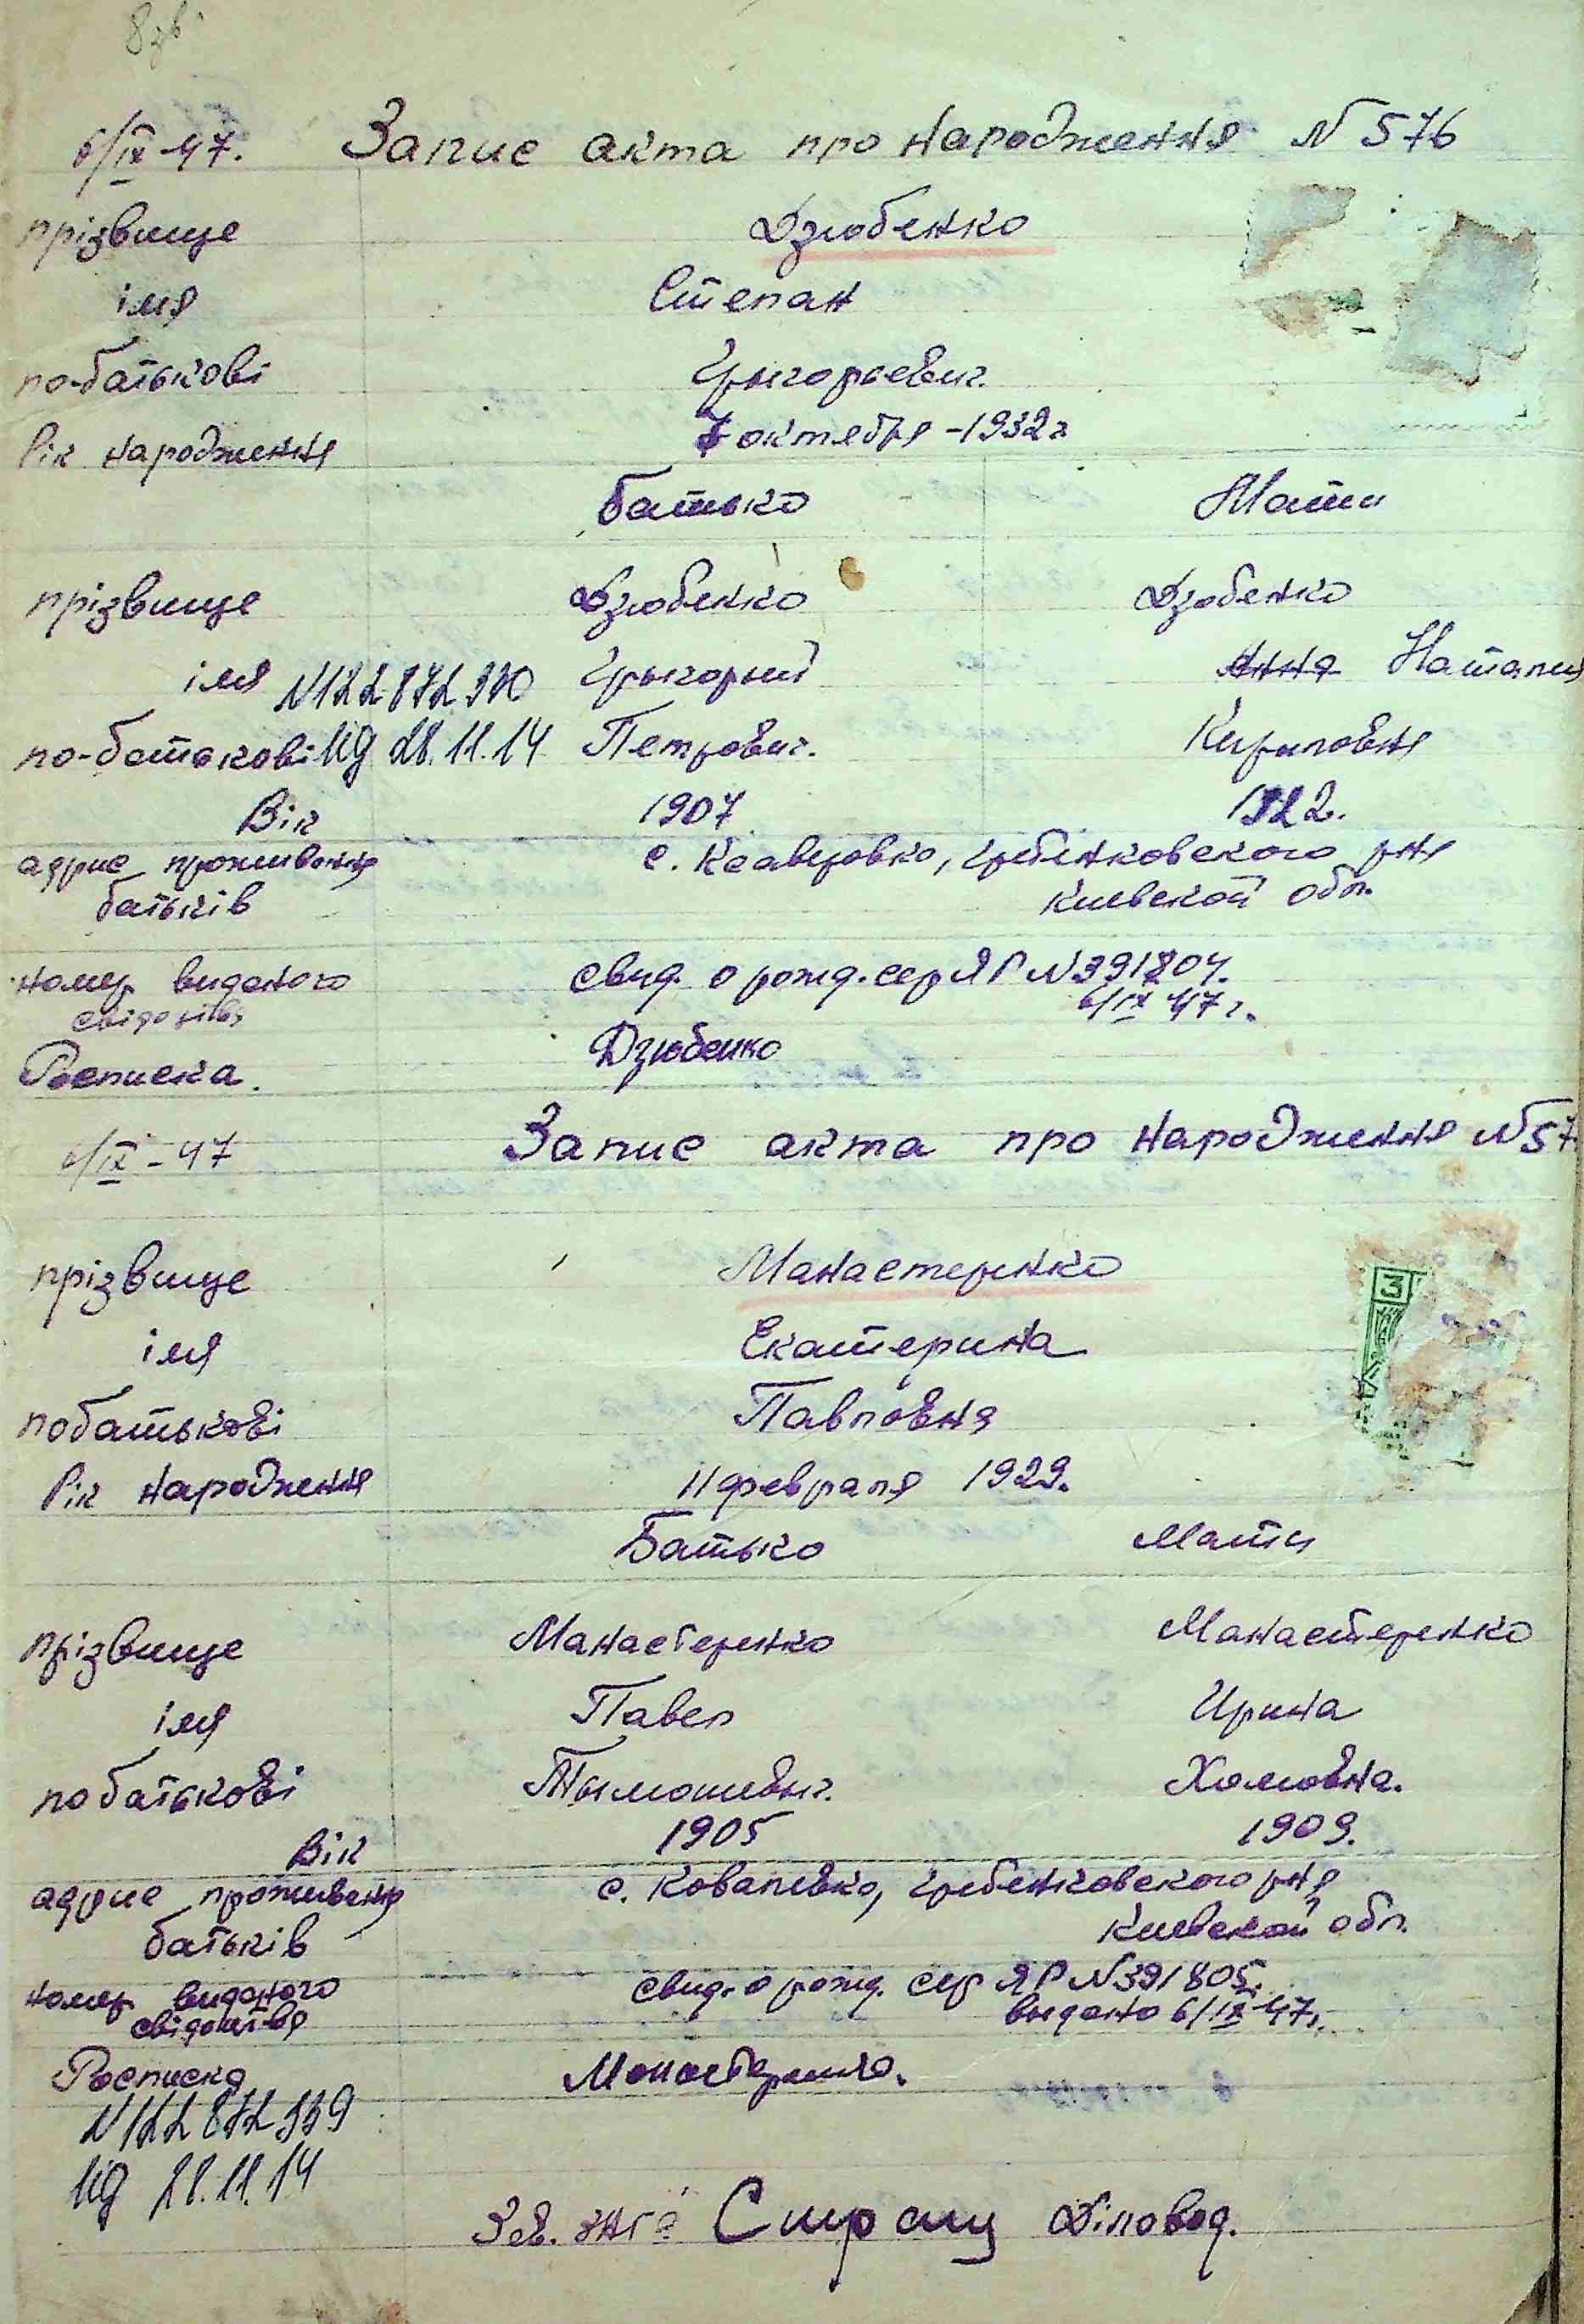 8зв.
6/IX-47. Запис акта про народження N 576
прізвище Дзюбенко
імя Степан
по-батькові Грыгорьевич.
Рік народження 7 октября -1932 г
батько Мати
прізвище Дзюбенко Дзюбенко
імя N122 872 930 Грыгорый Анна Наталия
по-батькові ИД 28.11.14 Петрович. Кириловна
Вік 1907 1922.
адрис проживання с. Ксаверовка, Гребенковского р-на
батьків Киевской обл.
номер виданого свид. о рожд. сер ЯР N 391804.
свідоцтва 6/IX 47 г.
Росписка. Дзюбенко
6/IX-47 Запис акта про народження N 57
прізвище Манастеренко
імя Екатерина
побатькові Павловна
Рік народження 11 февраля 1929.
Батько Мати
прізвище Манастеренко Манастеренко
імя Павел Ирина
побатькові Тымошевич. Хомовна.
Вік 1905 1909.
адрис проживання с. Ковалевка, Гребенковского р-на
батьків Киевской обл.
номер виданого свид. о рожд. сер ЯР N 391805.
свідоцтва выдано 6/IX-47 г.
Росписка
N122 872 939
ИД 28.11.14
Зав. ЗАГС Діловод.